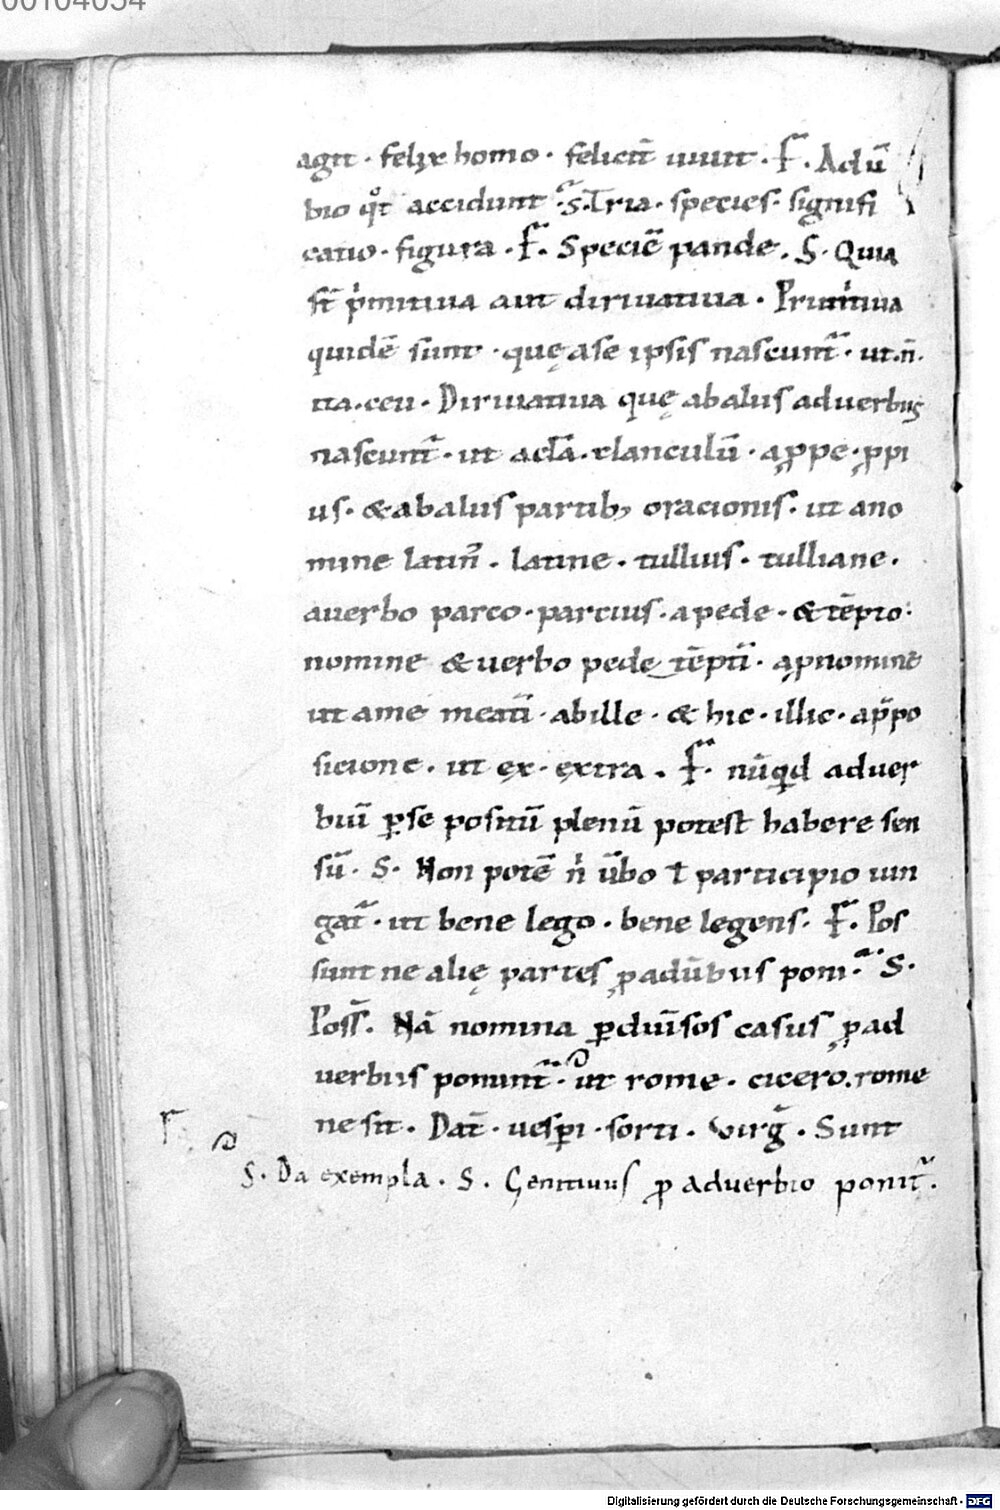 00104034
agit · felix homo · felicit̄ uiuit · F̄ · Adū
bio qͦt accidunt · S · Tria · species · signifi
catio · figura · F̄ · Speciē pande · S · Quia
st̄ p̍mitiua aut diriuatiua · Primitiua
quidē sunt · quę a se ipsis nascunt̄ · ut · n̄ ·
ita · ceu · Diriuatiua quę ab aliis aduerbiis
nascunt̄ · ut aclā · clanculū · a ꝓpe · ꝓpi
us · & ab aliis partib; oracionis · ut a no
mine latin̄ · latine · tullius · tulliane ·
a uerbo parco · parcius · a pede · & tēpto ·
nomine & uerbo pede tēptī · a ꝓnomine
ut a me meatī · ab ille · & hic · illic · a p̄po
sicione · ut ex · extra · F̄ · nūqd aduer
biū ꝑ se positū plenū potest habere sen
sū · S · Non potē n̍ ūbo ł participio iun
gat̄ · ut bene lego · bene legens · F̄ · Pos
sunt ne alię partes ꝓ adūbiis poni · S ·
Poss̄ · Nā nomina ꝑ diuīsos casus ꝓ ad
uerbiis ponunt̄ · ut rome · cicero · rome
ne sit · Dat̄ · uesꝑi · sorti · virḡ · Sunt
S · Da exempla · S · Genitiuus ꝓ aduerbio ponit̄ ·
Digitalisierung gefördert durch die Deutsche Forschungsgemeinschaft - DFG